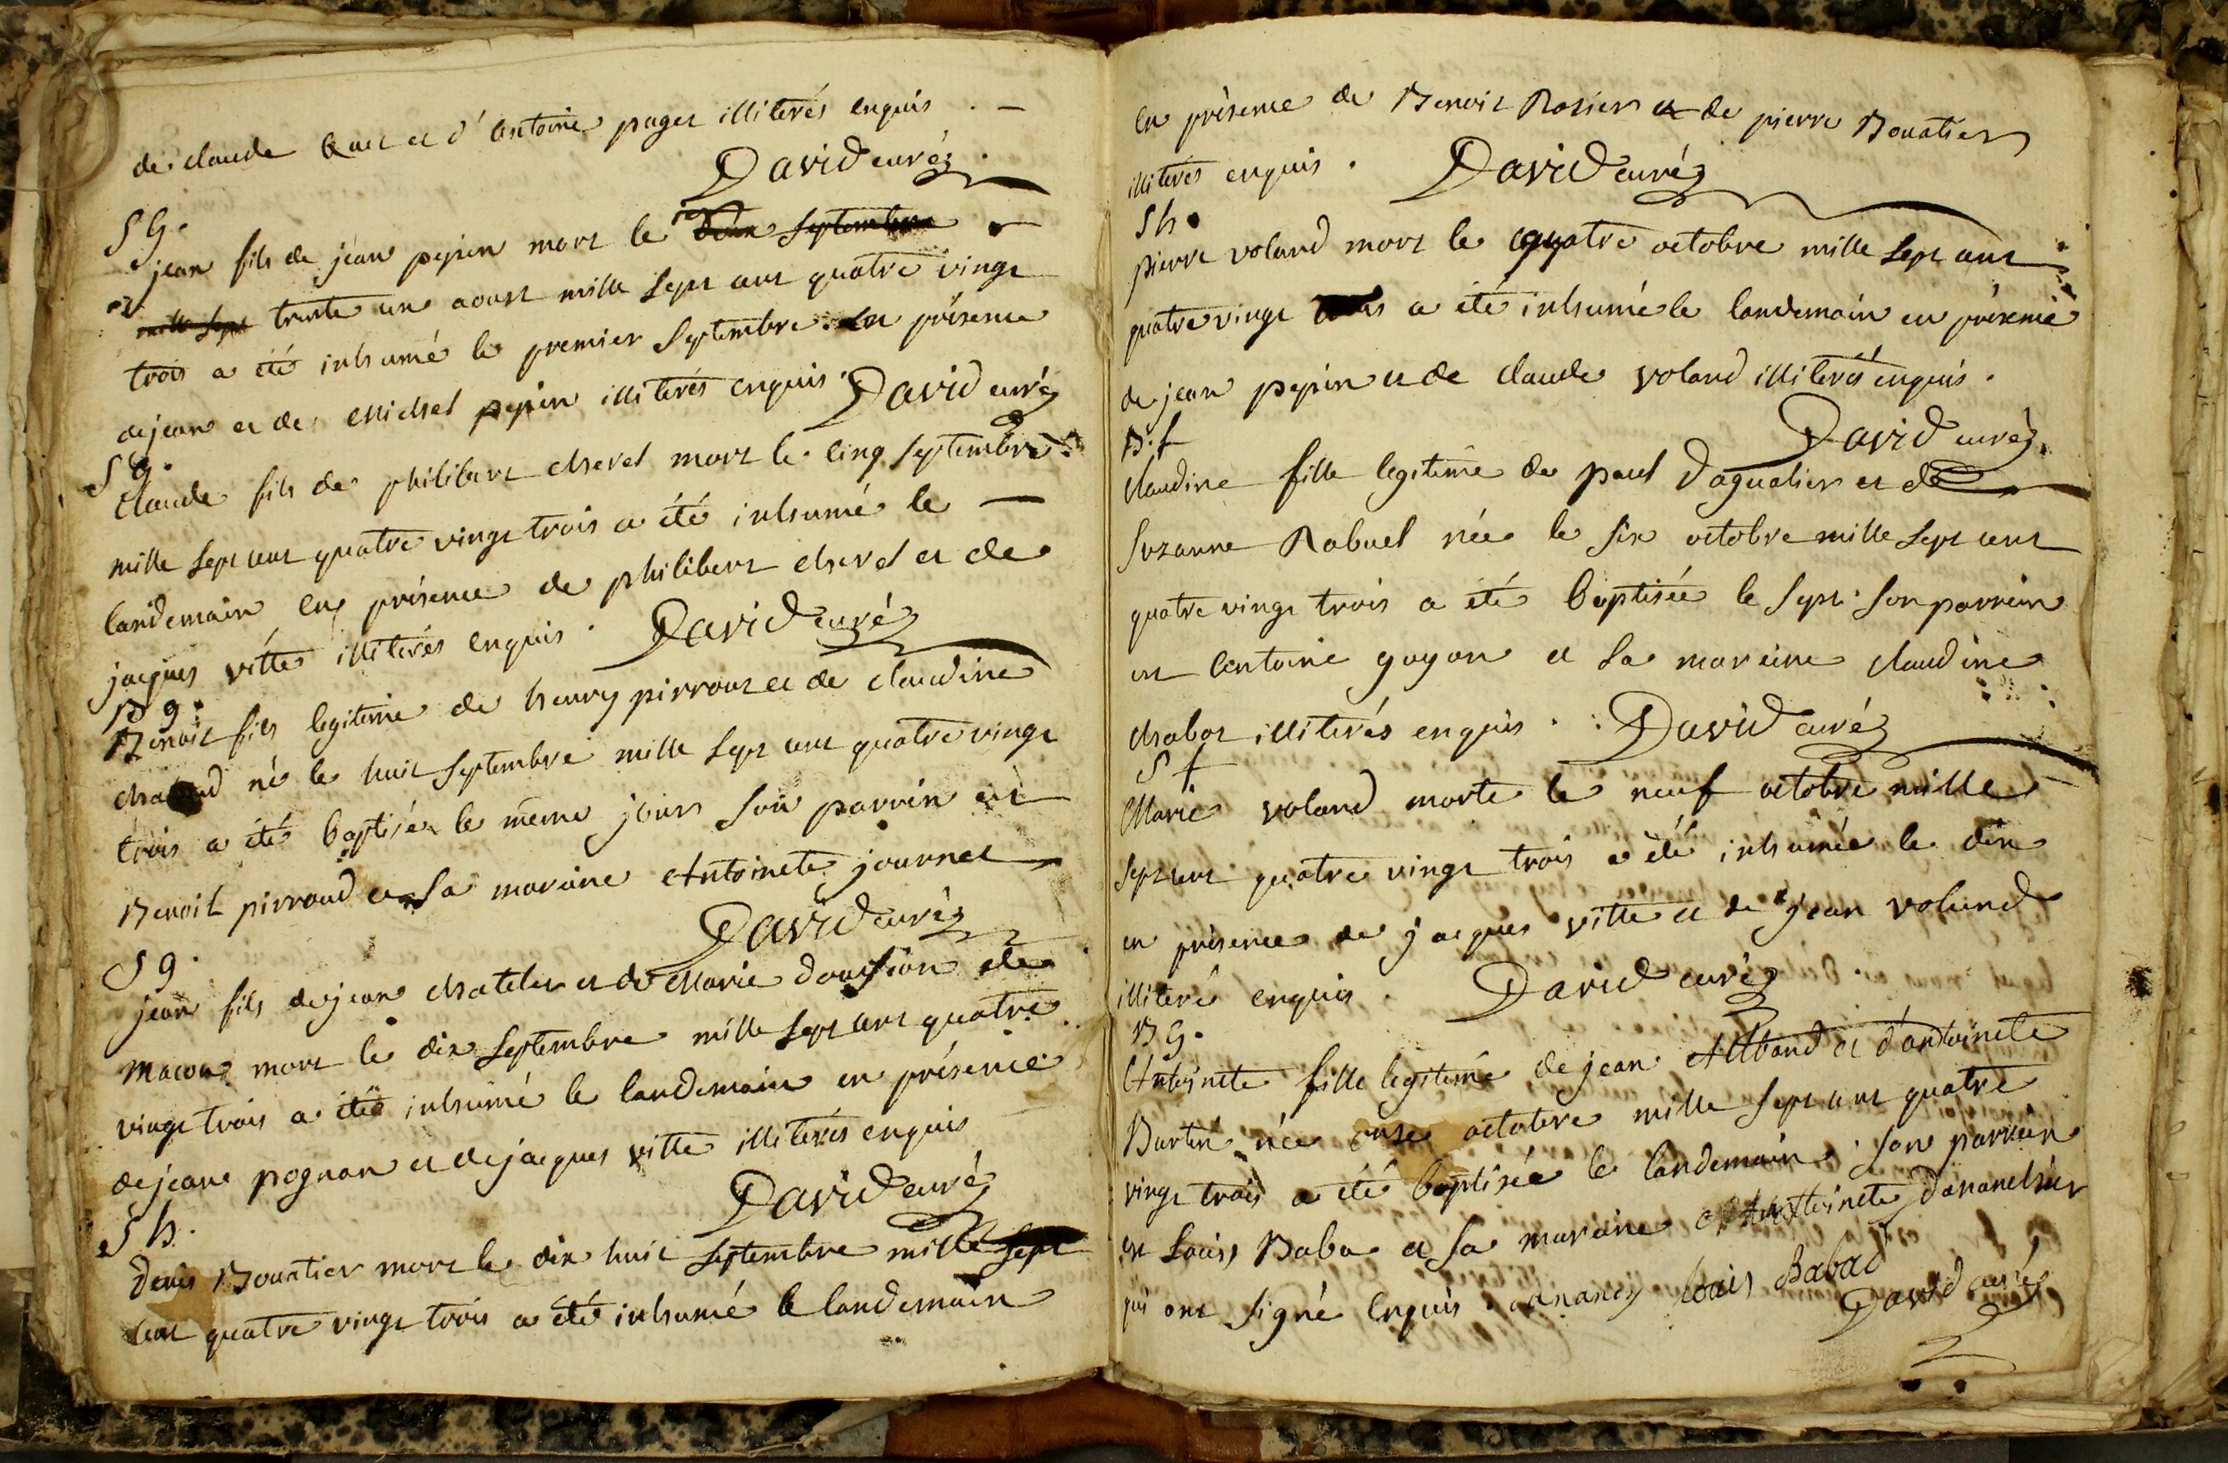 de claude et d'Antoine pagez illiterés enquis . —
David curé
S G.
jean fils de jean pepin mort le deux septembre
mille sept trente un aoust mille sept cent quatre vingt
trois a été inhumé le premier septembre . en présence
de jean et de Michel pepin illiterés enquis . David curé
S G.
Claude fils de philibert cherel mort le cinq septembre
mille sept cent quatre vingt trois a été inhumé le —
landemain en présence de philibert cherel et de
jacques vitte illiterés enquis . David curé
B g.
Benoit fils legitime de henry pirrout et de claudine
né le huit septembre mille sept cent quatre vingt
trois a été baptisé le même jour son parrein est
Benoit pirroud et sa mareine Antoinete journet
David curé
S g.
jean fils de jean chateler et de Marie doufion de
macon mort le dix septembre mille sept cent quatre
vingt trois a été inhumé le landemain en présence
de jean pognan et de jacques vitte illiterés enquis
David curé
S h.
denis Bouatier mort le dix huit septembre mille sept
cent quatre vingt trois a été inhumé le landemain
en présence de Benoit Rosier et de pierre Bouatier
illiterés enquis . David curé
S h.
pierre voland mort le quatre octobre mille sept cent
quatre vingt trois a été inhumé le landemain en présence
de jean pepin et de claude voland illiterés enquis .
David curé
B. f
claudine fille legitime de paul dagualier et de
Suzanne Rabuel née le six octobre mille sept cent
quatre vingt trois a été baptisée le sept . son parrein
est Antoine goyon et sa mareine claudine
chabot illiterés enquis . David curé
S f
Marie voland morte le neuf octobre mille
sept cent quatre vingt trois a été inhumée le dix
en présence de jacques vitte et de jean voland
illiteré enquis . David curé
B G.
Antoinete fille legitime de jean Alband et d'antoinete
Burtin née onze octobre mille sept cent quatre
vingt trois a été baptisée le landemain . son parrein
est Louis Baba et sa mareine Antoinete
qui ont signé enquis . louis Babad
David curé